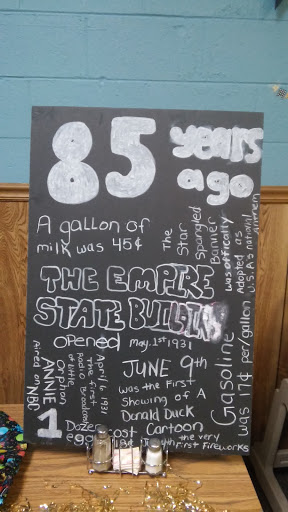 85 years
ago
A gallon of
milk was 45¢
The
Star
Spangled
Banner
was officially
Adopted as
U.S.A's national
Anthem
THE EMPIRE
STATE BUILDING
opened May.1st 1931
April 6 1931
The first
Radio Broadcast
of Little
Orphan
ANNIE
Aired on NBC
JUNE 9th
was the First
Showing of A
Donald Duck
Cartoon
Gasoline
was 17¢ per/gallon
1 Dozen
eggs cost
July 4th the very
First Fireworks